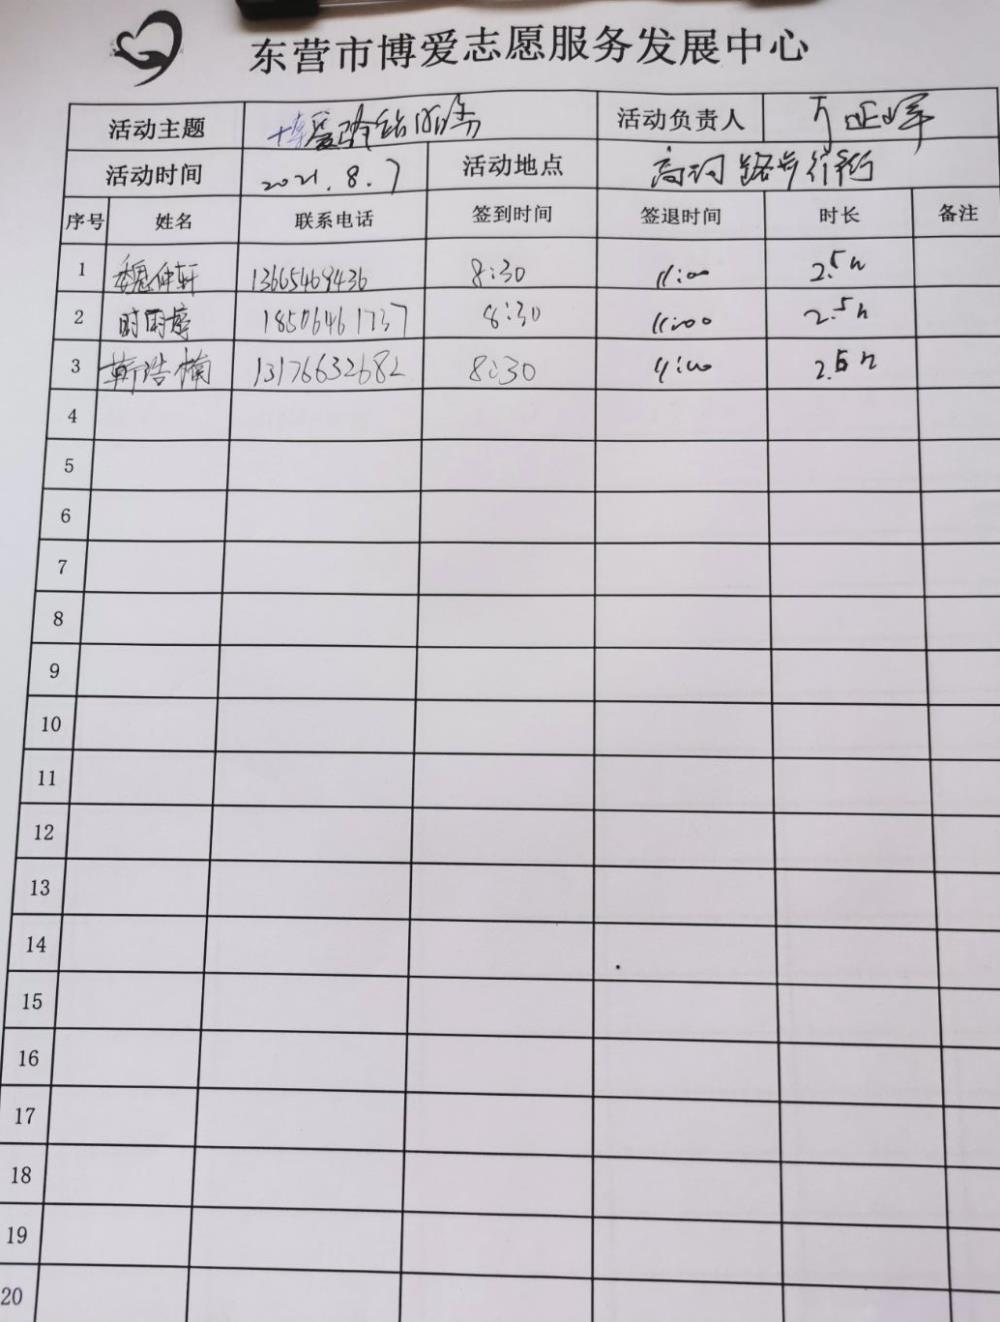 东营市博爱志愿服务发展中心
活动主题 博爱 活动负责人
活动时间 2021.8.7 活动地点 路步行街
序号 姓名 联系电话 签到时间 签退时间 时长 备注
1 魏仲轩 13665469436 8:30 11:00 2.5h
2 时雨 18506461737 8:30 11:00 2.5h
3 靳浩楠 13176632682 8:30 11:00 2.5h
4
5
6
7
8
9
10
11
12
13
14
15
16
17
18
19
20